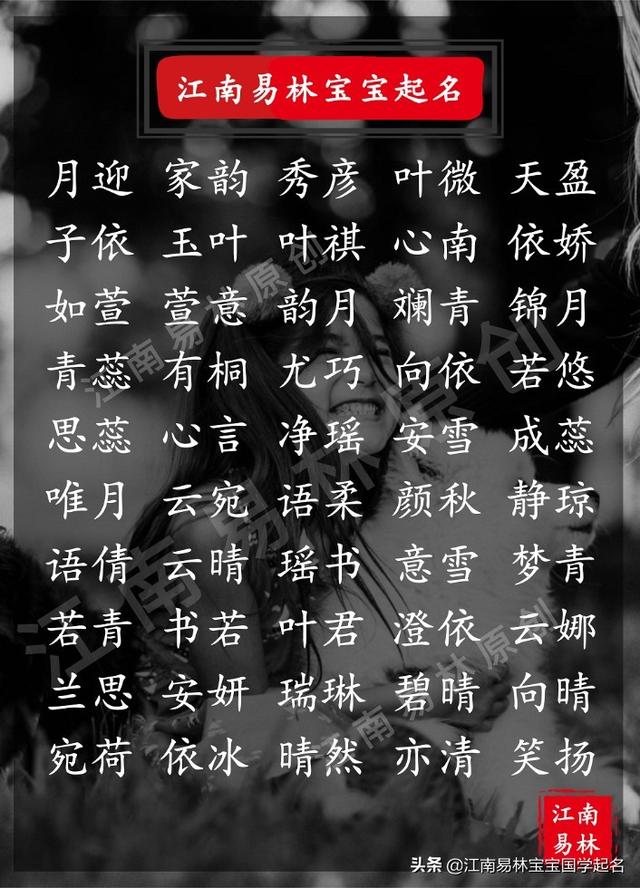 江南易林宝宝起名
月迎 家韵 秀彦 叶微 天盈
子依 玉叶 叶祺 心南 依娇
如萱 萱意 韵月 斓青 锦月
青蕊 有桐 尤巧 向依 若悠
思蕊 心言 净瑶 安雪 成蕊
唯月 云宛 语柔 颜秋 静琼
语倩 云晴 瑶书 意雪 梦青
若青 书若 叶君 澄依 云娜
兰思 安妍 瑞琳 碧晴 向晴
宛荷 依冰 晴然 亦清 笑扬
江南易林原创
江南易林原创
江南易林原创
江南
易林
头条 @江南易林宝宝国学起名